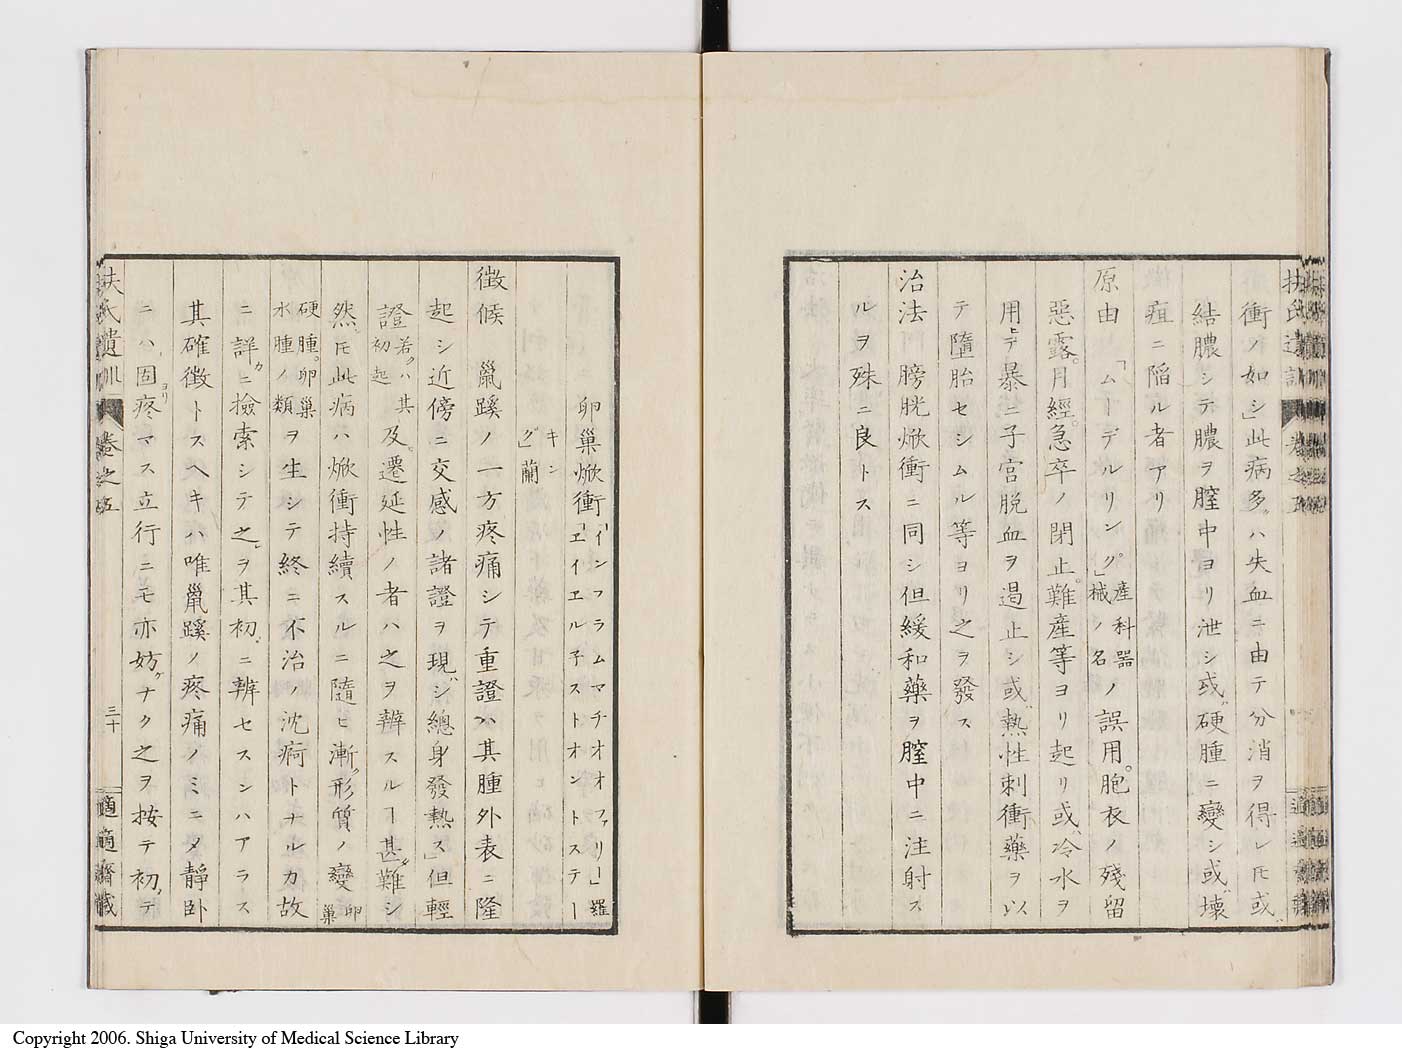 衝ノ如シ」此病多クハ失血ニ由テ分消ヲ得レ𪜈或ハ
結膿シテ膿ヲ膣中ヨリ泄シ或ハ硬腫ニ變シ或ハ壊
疽ニ陷ル者アリ
原由 「ムーデルリング」産科器械ノ名ノ誤用。胞衣ノ殘留
惡露。月經。急卒ノ閉止。難産等ヨリ起リ或ハ冷水ヲ
用ヒテ暴ニ子宮脱血ヲ遏止シ或ハ熱性刺衝藥ヲ以
テ墮胎セシムル等ヨリ之ヲ發ス
治法 膀胱焮衝ニ同シ但緩和藥ヲ膣中ニ注射ス
ルヲ殊ニ良トス
扶氏遺訓 卷之五
卵巢焮衝「インフラムマチオオファリー」羅
「エイエルストオントステーキング」蘭
徴候 鼠蹊ノ一方疼痛シテ重證ハ其腫外表ニ隆
起シ近傍ニ交感ノ諸證ヲ現シ總身發熱ス」但輕
證若クハ其初起及ヒ遷延性ノ者ハ之ヲ辨スルヿ甚タ難シ
然レ𪜈此病ハ焮衝持續スルニ隨ヒ漸ク形質ノ變卵巢
硬腫。卵巢水腫ノ類ヲ生シテ終ニ不治ノ沈痾トナルカ故
ニ詳カニ撿索シテ之ヲ其初ニ辨セスンハアラス
其確徴トスヘキハ唯鼠蹊ノ疼痛ノミニメ靜卧
ニハ固ヨリ疼マス立行ニモ亦妨ケナク之ヲ按テ初メテ
扶氏遺訓 卷之五 三十 適適齋藏
Copyright 2006. Shiga University of Medical Science Library